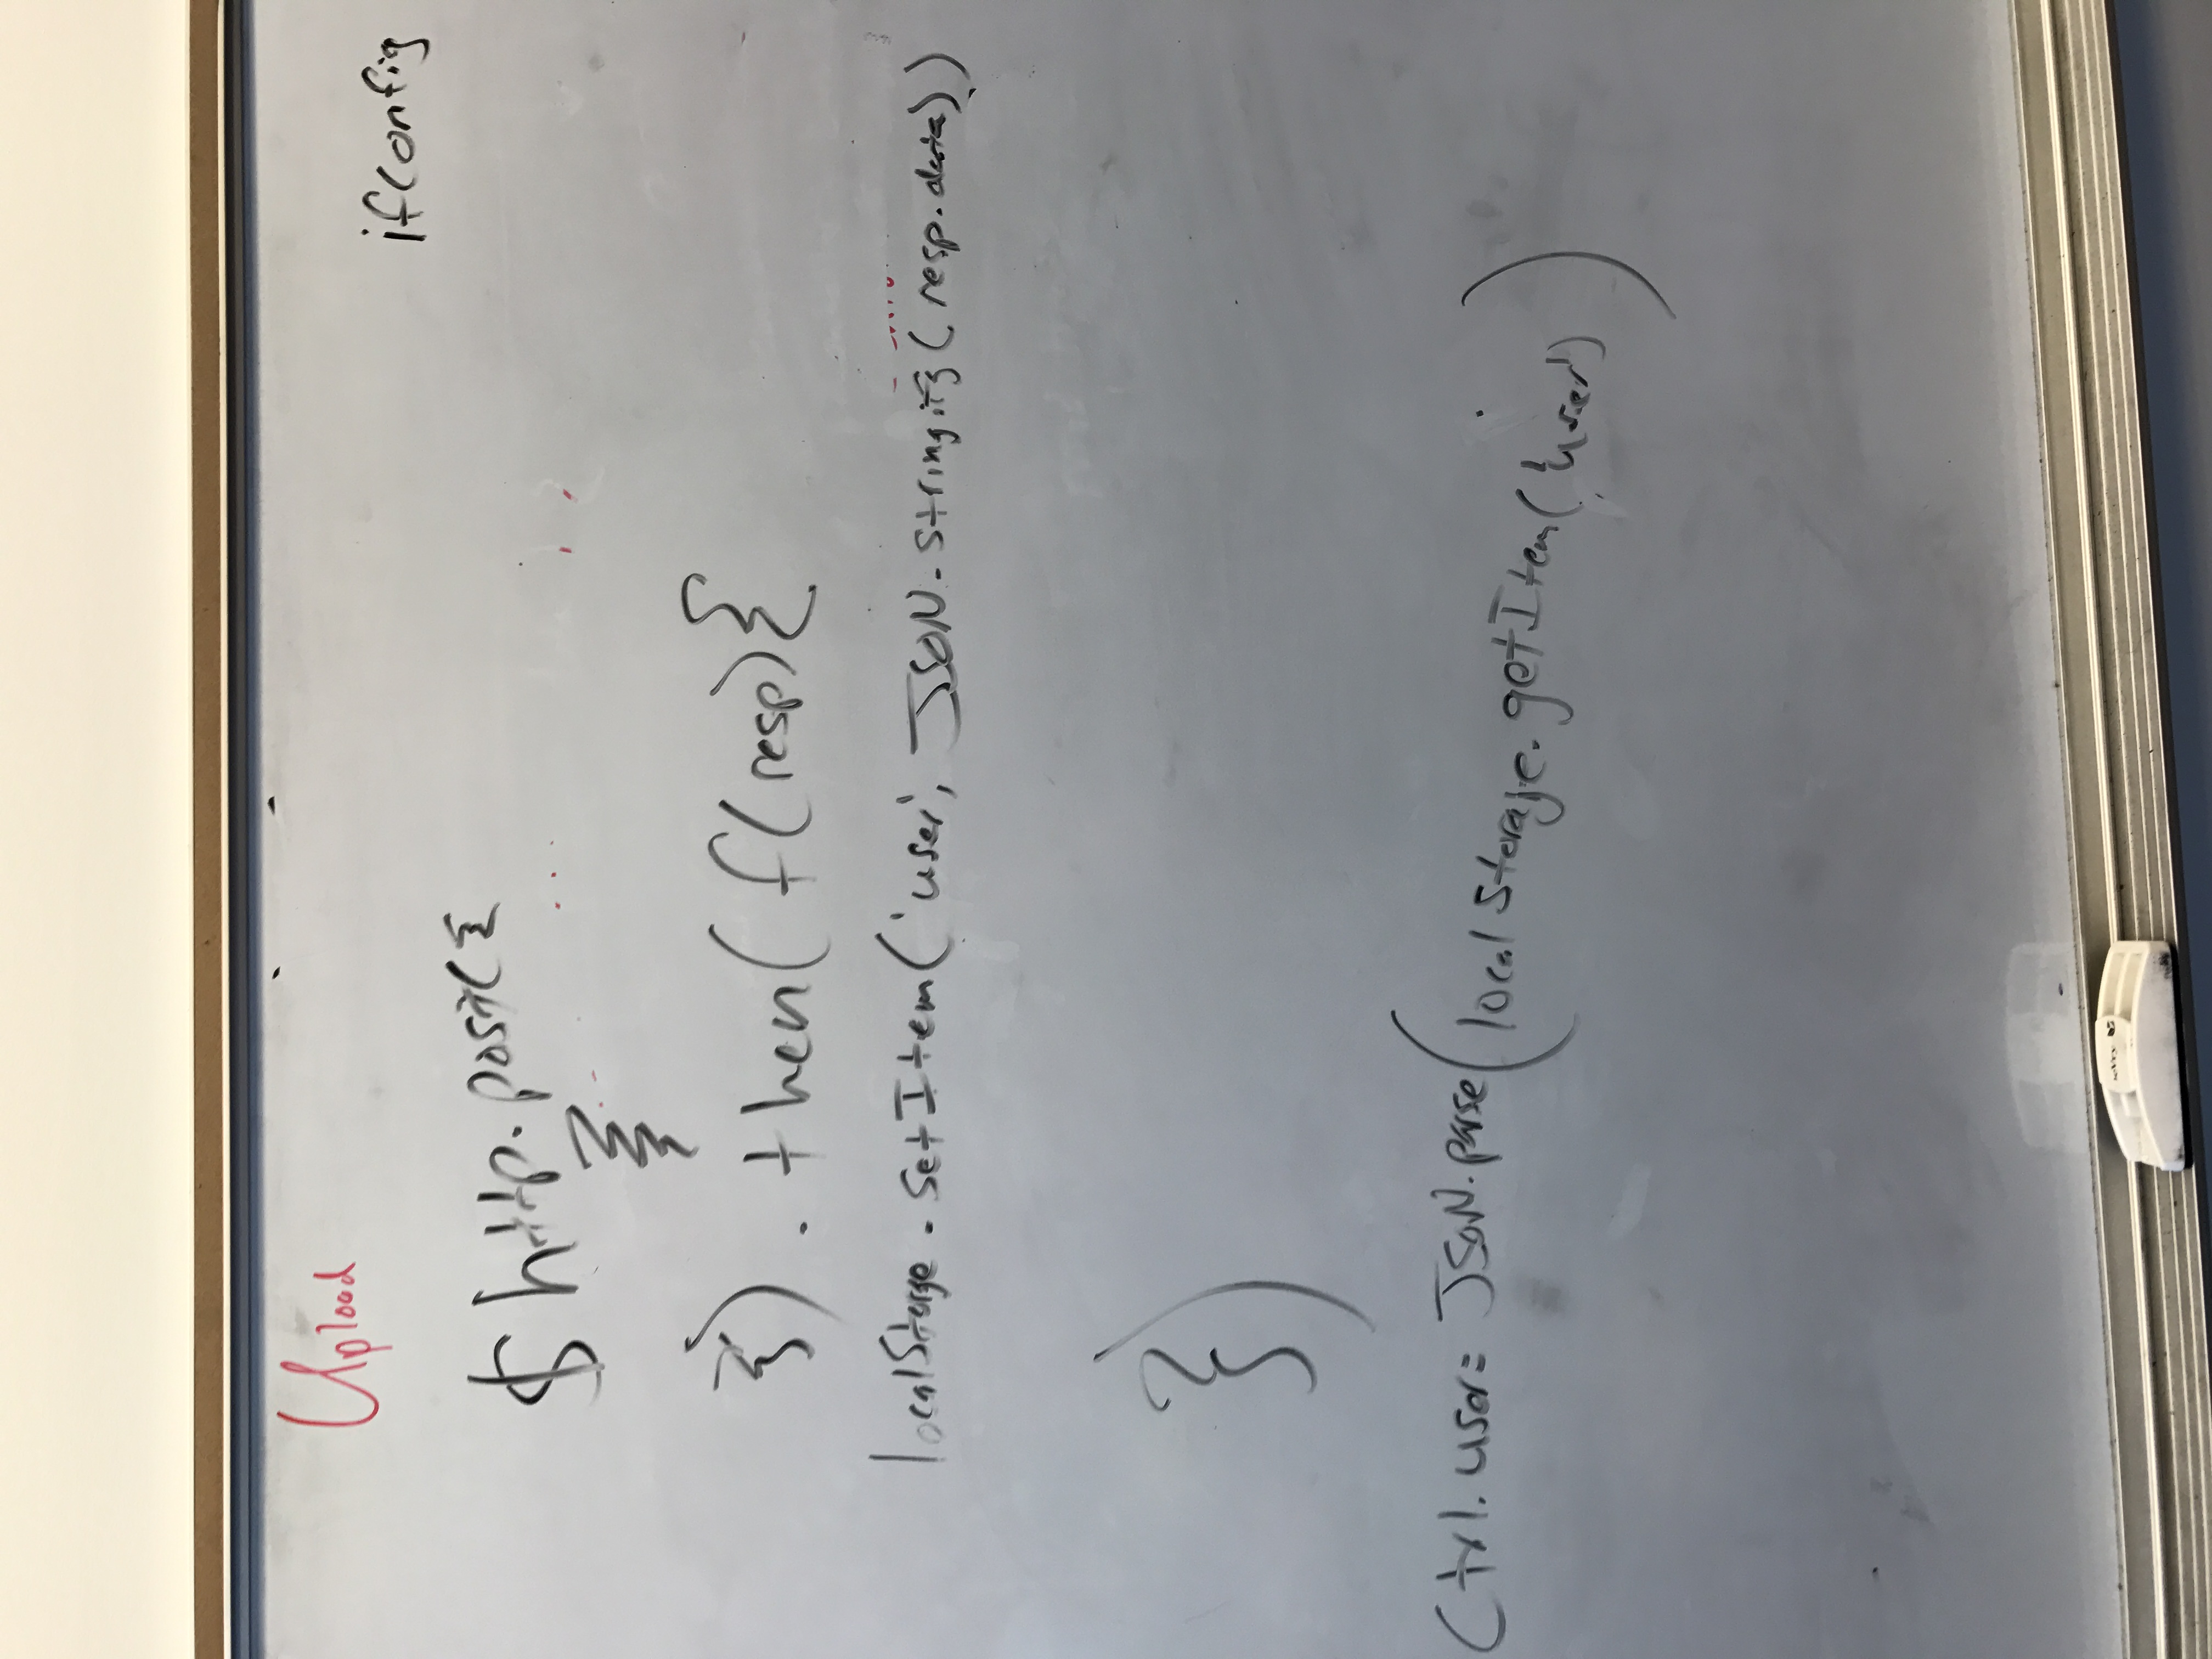 Upload
ifconfig
$http.post({
}).then(f(resp){
localStorge.setItem('user', JSON.stringify(resp.data))
})
Ctrl.user= JSON.parse(localStorage.getItem('user'))